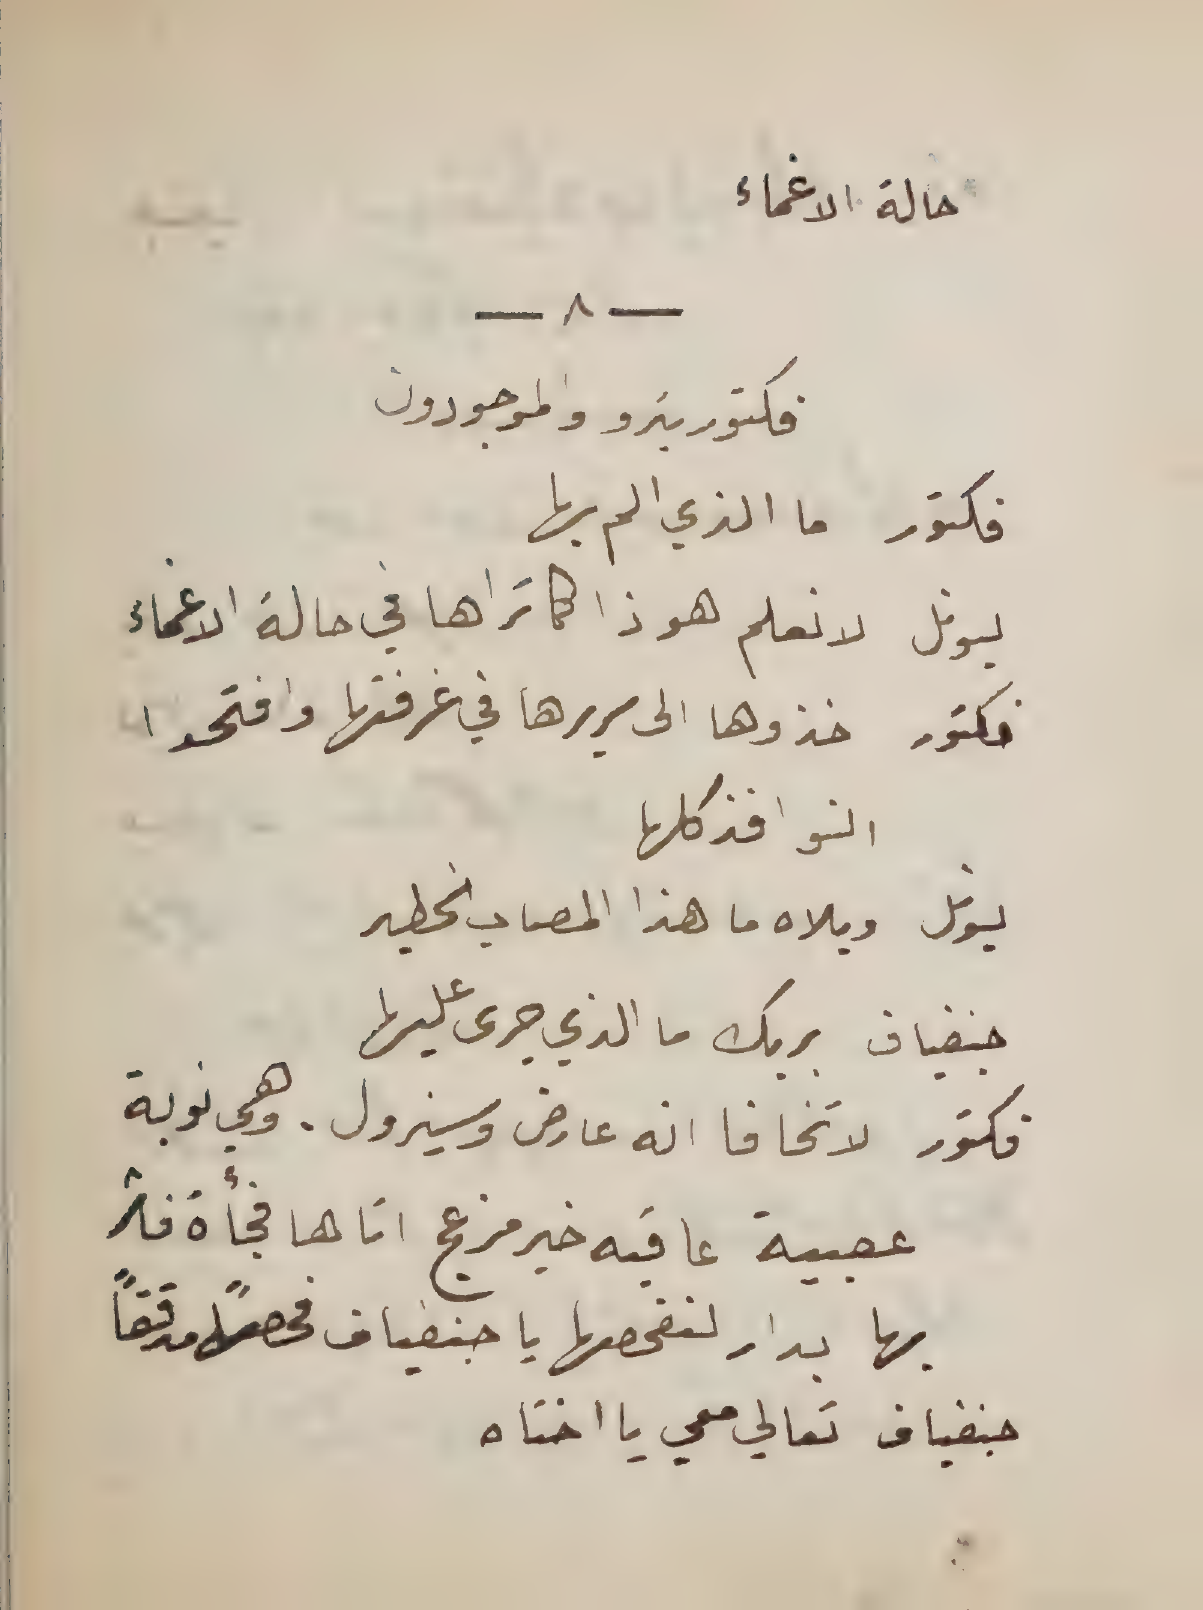 حالة الاغماء
— ٨ —
فكتور بترو والموجودون
فكتور ما الذي الم بها
ليونل لا نعلم هوذا كما تراها في حالة الاغماء
فكتور خذوها الى سريرها في غرفتها وافتحوا
النوافذ كلها
ليونل ويلاه ما هذا المصاب الخطير
جنفياف بربك ما الذي جرى عليها
فكتور لا تخافا انه عارض وسيزول . وهي نوبة
عصبية عاقبه خير مزعج اتاها فجأة فأثر
بها بدار لنفحصها يا جنفياف فحصاً مدققاً
جنفياف تعالي معي يا اختاه